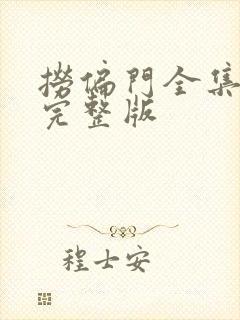 撈偏門全集
完整版
程士安